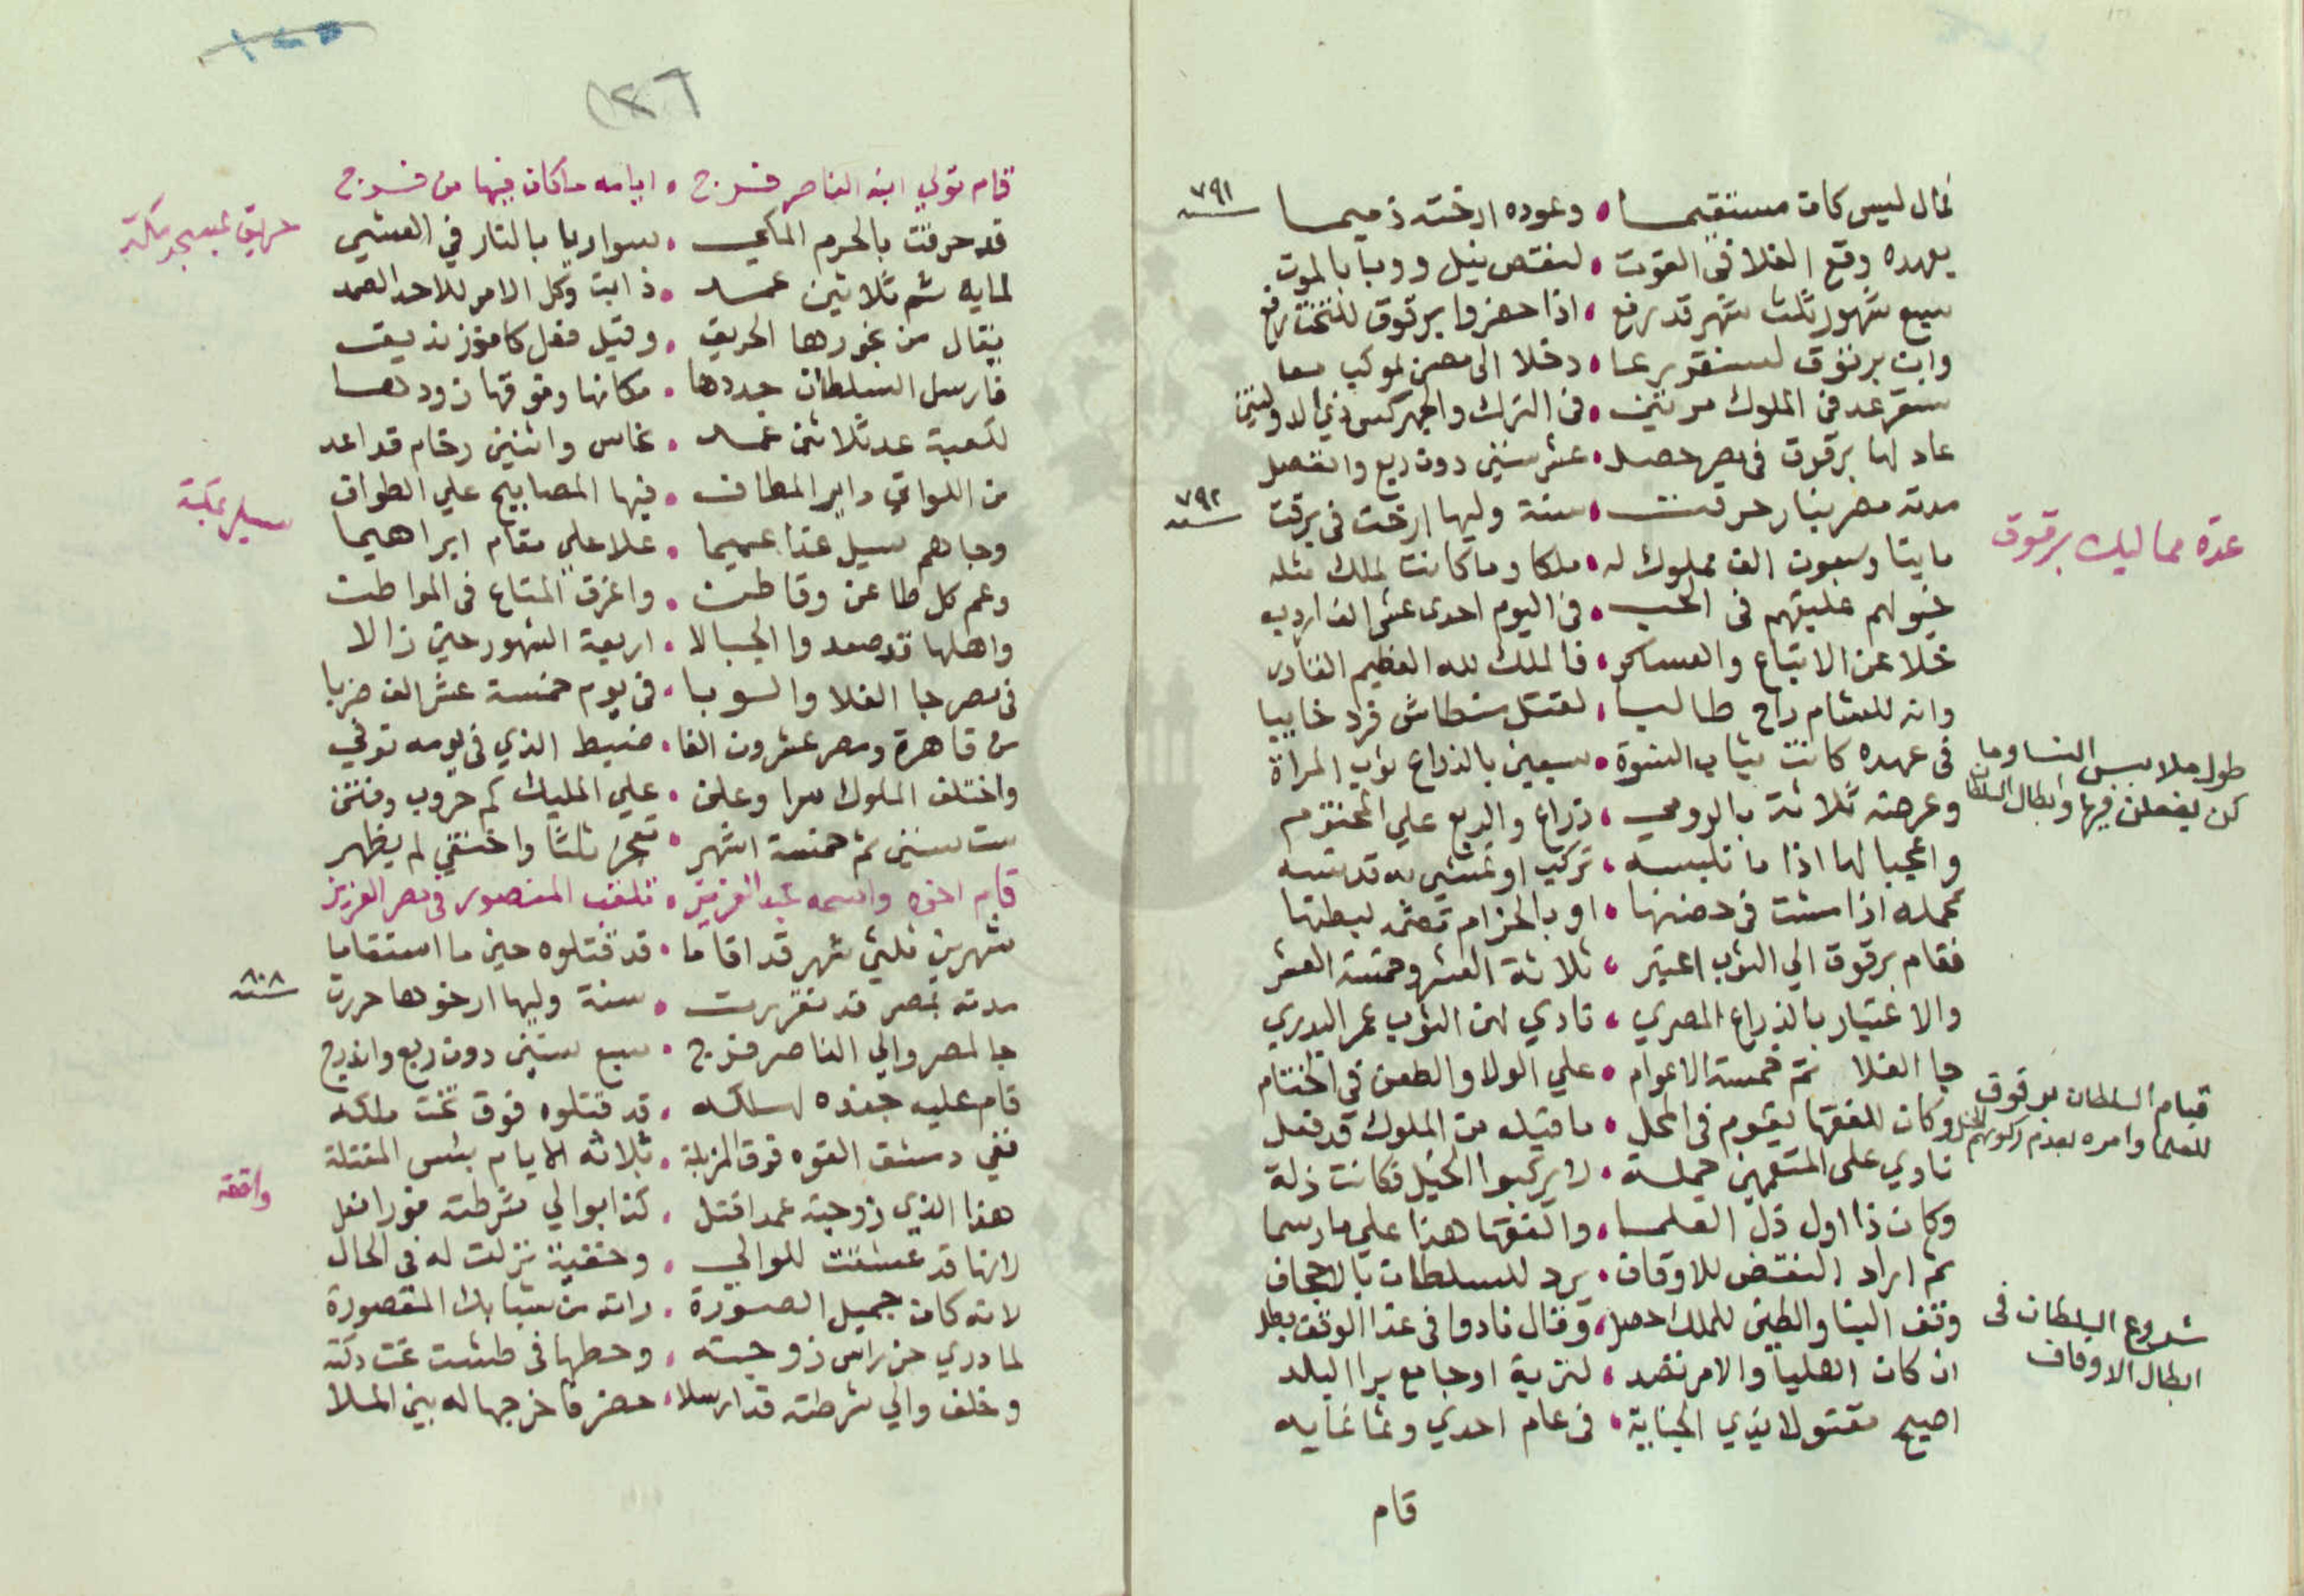 ٧٩١ سنة
فمال ليس كان مستقيما • وعوده ارخته ذميما
بعهده وقع الغلا في القوت • لنقص نيل ووبا بالموت
سبع شهور ثلث شهر قد رفع • اذا حضروا برقوق للتخت رفع
وابن برقوق لسنقر يرعا • دخلا الى مصر بموكب معا
عد في الملوك مرتين • في الترك والجركس ذي الدولتين
عاد لها برقوق في مصر حصل • عشر سنين دون ربع وانفصل
٧٩٢ سنة
مدته مصر بنار حرقت • سنة وليها ارخت في برقت
عدة مماليك برقوق
مايتا وسبعون الف مملوك له • ملكا وما كانت لملك مثله
خيولهم عليقهم في الحسب • في اليوم احدى عشر الف اردب
خلا عن الاتباع والعساكر • فالملك لله العظيم القادر
وانه للشام راح طالبا • لقتل منطاش فرد خايبا
طول ملابس النسا وما
كن يفعلن فيها وابطال السلطان
في عهده كانت ثياب النسوة • سبعين بالذراع ثوب المراة
وعرضه ثلاثة بالرومي • ذراع والربع علي المختوم
واعجبا لها اذا ما تلبسه • تركب او تمشي به قد
تحمله اذا مشت في حضنها • او بالحزام تحت لبطنها
فقام برقوق الي الثوب اعتبر • ثلاثة العشر وخمسة العشر
والاعتبار بالذراع المصري • نادي لهن الثوب عمر البدري
جا الغلا ثم خمسة الاعوام • علي الولا والطعن في الختام
قيام السلطان برقوق
للعلما وامره بعدم ركوبهم الخيل
وكان للفقها يقوم في المحل • ما قبله من الملوك قد فعل
نادي على المتعممين جملة • لا يركبوا الخيل فكانت ذلة
وكان ذا اول ذل العلما • والفقها هذا علي ما رسما
ثم اراد النقض للاوقاف • يرد للسلطان بالاجحاف
شروع السلطان فى
ابطال الاوقاف
وقف البنا والطين للملك حصل • وقال نادوا في غدا الوقف بطل
ان كان اهليا والامر نفد • لتربة او جامع برا البلد
اصبح مقتولا بذي الجناية • في عام احدي وثمانمايه
قام
١٢٦
قام تولي ابنه الناصر فرج • ايامه ما كان فيها من فرج
حريق بمسجد مكة
قد حرقت بالحرم المكي • سواريا بالنار في العشي
لمايه ثم ثلاثين عمد • ذابت وكل الامر للاحد الصمد
يقال من بخورها الحريق • وقيل فعل كافر زنديق
فارسل السلطان جددها • مكانها وفوقها زود لها
لكعبة عد ثلاثين عمد • نحاس واثنين رخام قد اعد
من اللواتي داير المطاف • فيها المصابيح علي الطواف
سيل بمكة
وجاهم سيل غذا عميما • علا علي مقام ابراهيما
وعم كل ظاعن وقاطن • واغرق المتاع في المواطن
واهلها قد صعدوا الجبالا • اربعة الشهور حتى زالا
في مصر جا الغلا والوبا • في يوم خمسة عشر الف ضربا
من قاهرة ومصر عشرون الفا • ضبط الذي في يومه توفي
واختلف الملوك سرا وعلن • علي المليك كم حروب وفتن
ست سنين ثم خمسة اشهر • ثلثا واختفي لم يظهر
قام اخوه واسمه عبد العزيز • تلقب المنصور في مصر العزيز
شهرين ثلثي شهر قد اقاما • قد قتلوه حين ما استقاما
٨٠٨ سنة
مدته بمصر قد تقررت • سنة وليها ارخوها حررت
جا لمصر والي الناصر فرج • سبع سنين دون ربع واندرج
قام عليه جنده لسلكه • قد قتلوه فوق تخت ملكه
ففي دمشق القوه فوق المزبلة • ثلاثه الايام بئس المقتلة
واقعة
هذا الذي زوجته عمدا قتل • كذا بوالي شرطته فورا فعل
لانها قد عشقت للوالي • وخفية نزلت له في الحال
لانه كان جميل الصورة • راته من شبابك المقصورة
لما دري حز راس زوجته • وحطها في طشت تحت دكته
وخلف والي شرطته قد ارسلا • حضر فاخرجها له بين الملا